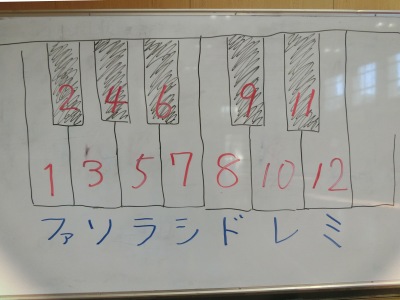 2 4 6 9 11
1 3 5 7 8 10 12
ファ ソ ラ シ ド レ ミ